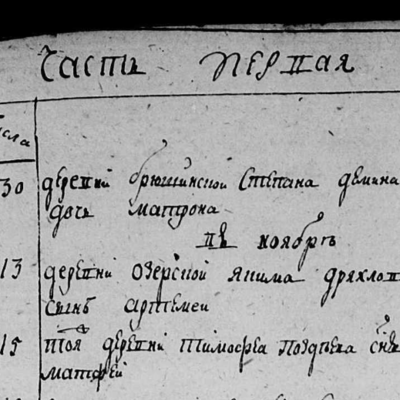 часть первая
числа
30 деревни брюшинской степана демина
дочь матрона
въ ноябрѣ
13 деревни озерской якима дряхлов
сынъ артемеи
15 тоя деревни тимофея поздѣева снъ
матфей